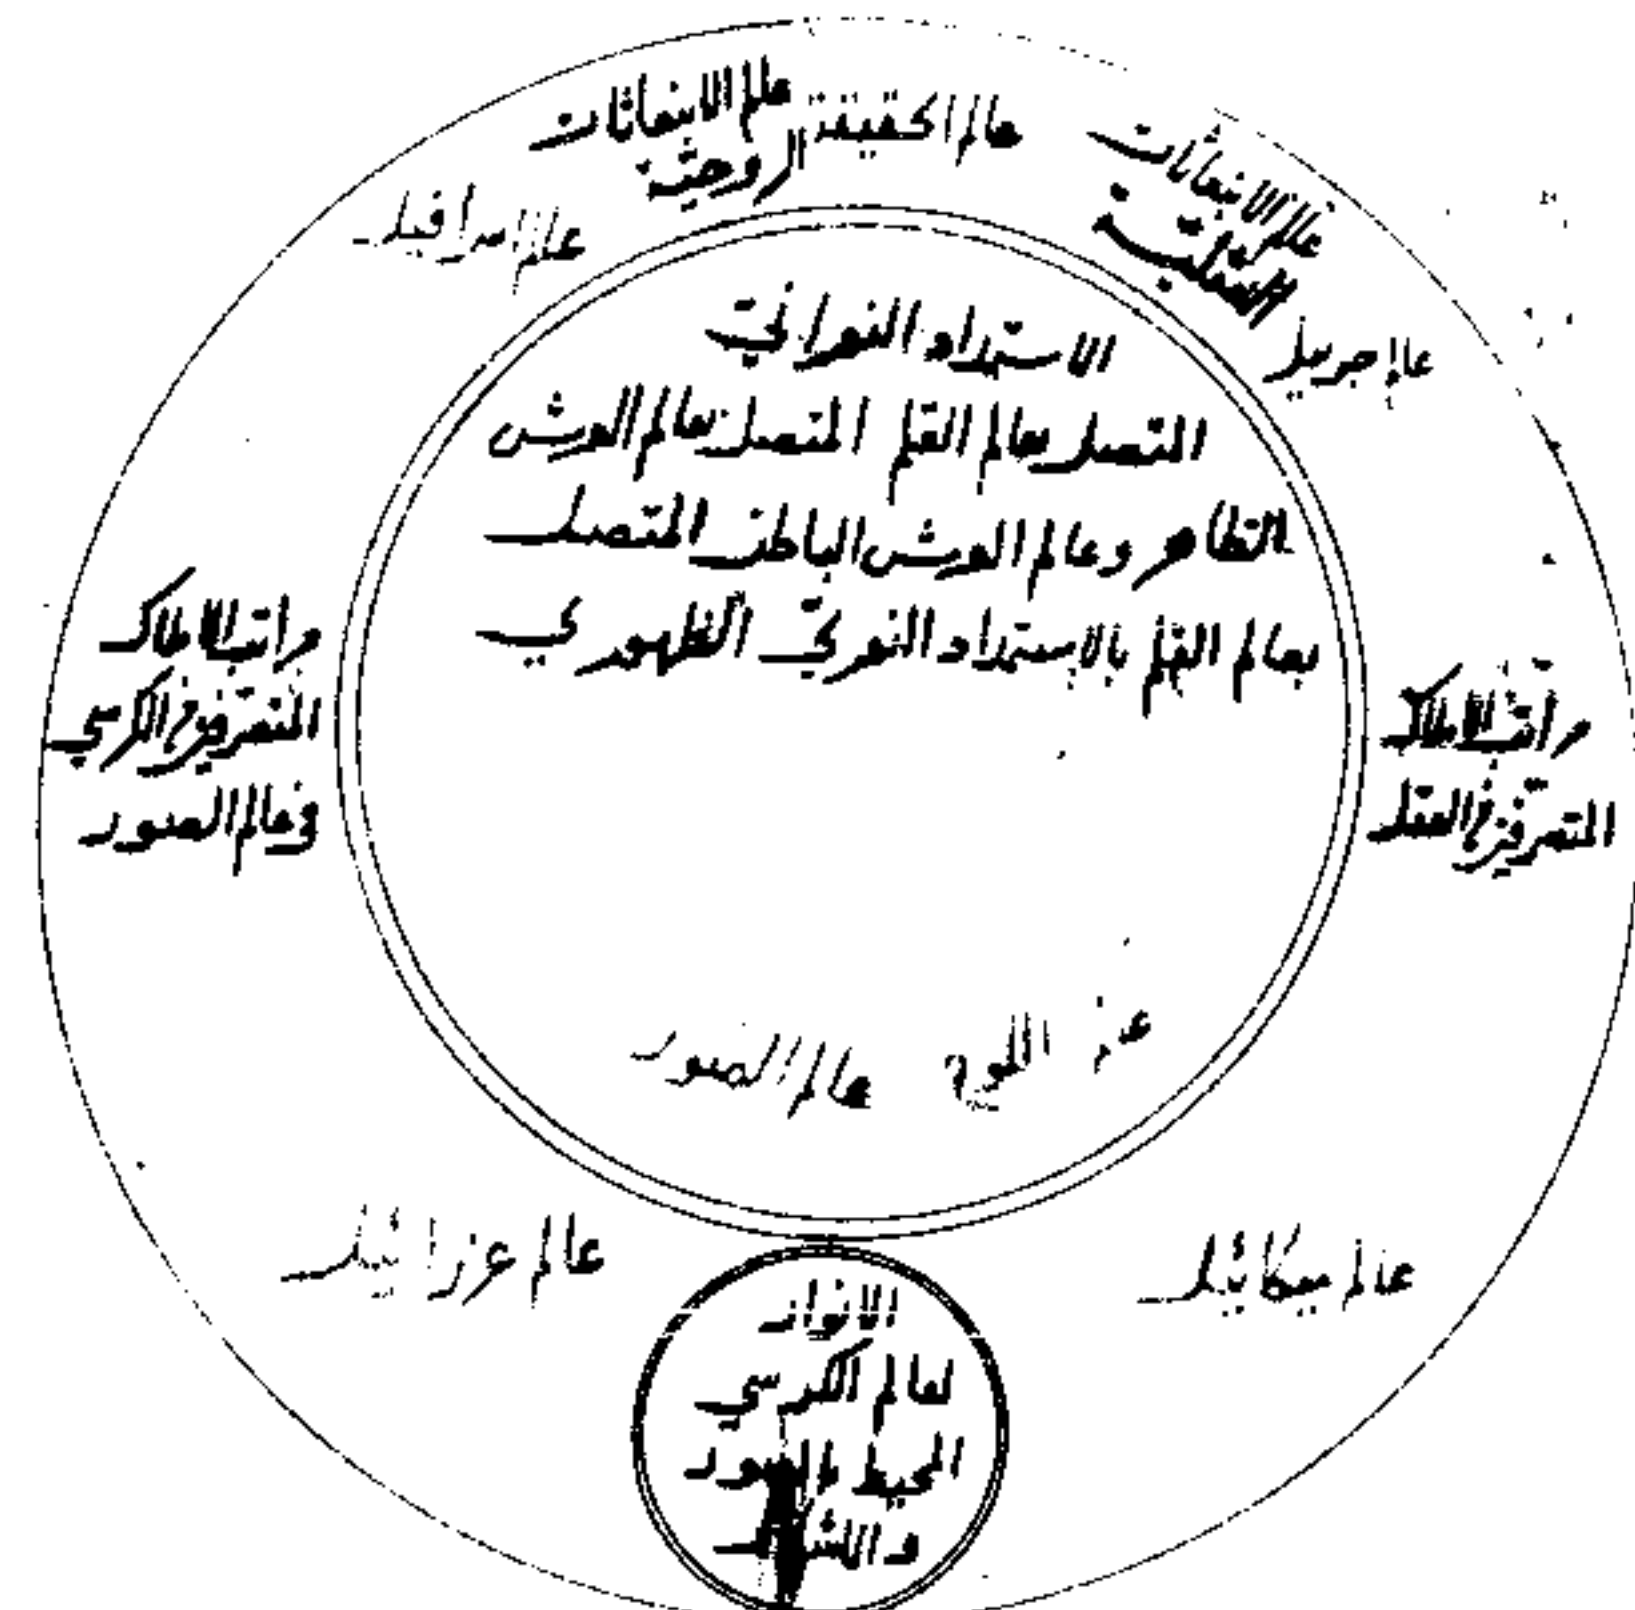 عالم الانبعاثات
العقلية
عالم جبريل
عالم الحقيقة
عالم الانبعاثات
الروحية
عالم اسرافيل
الاستمداد النوراني
المتصل بعالم القلم المتصل بعالم العرش
الظاهر وعالم العرش الباطن المتصل
بعالم القلم بالاستمداد النوري الظهوري
مراتب الاملاك
المتصرفين في العقل
مراتب الاملاك
المتصرفين في الكرسي
وعالم الصور
اللوح
عالم الصور
عالم ميكائيل
عالم عزرائيل
الانوار
لعالم الكرسي
المحيط بالصور